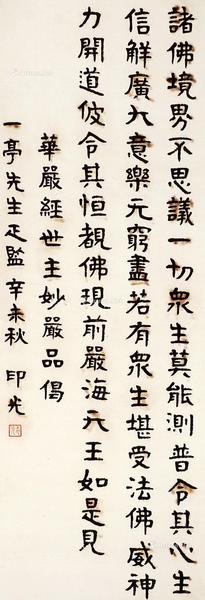 諸佛境界不思議一切衆生莫能測普令其心生
信解廣大意樂无窮盡若有衆生堪受法佛威神
力開道彼令其恒覩佛現前嚴海天王如是見
華嚴經世主妙嚴品偈
一亭先生疋監辛未秋 印光